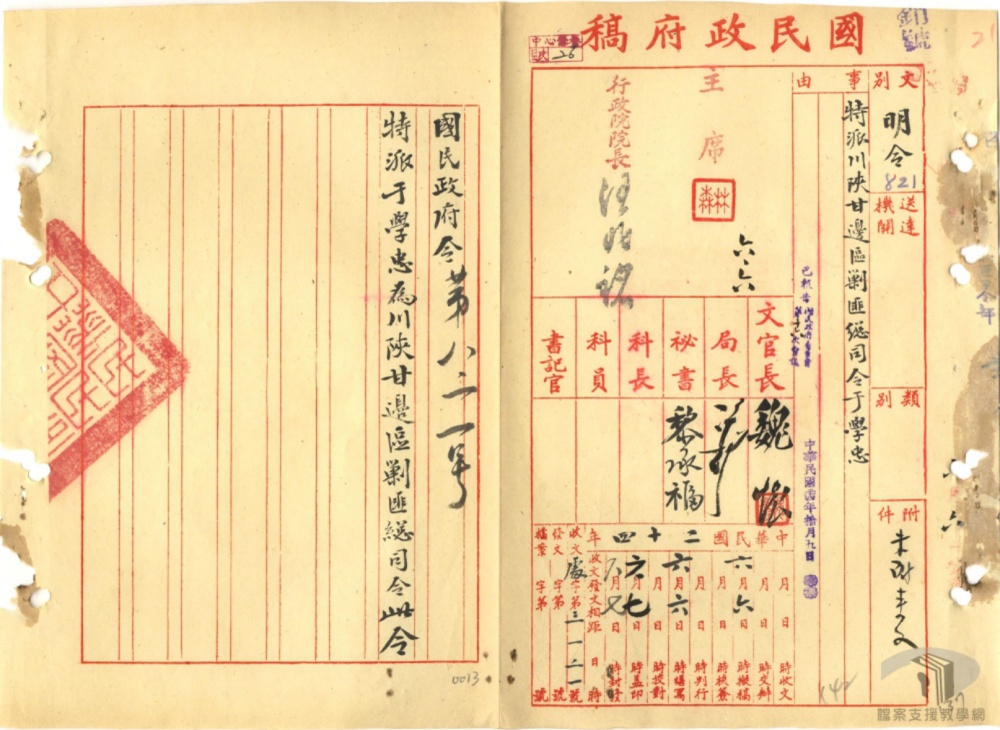 國民政府稿
文別
明令
821
送達機關
類別
附件
事由
特派川陝甘邊區剿匪總司令于學忠
中華民國
主席
六、六
行政院院長
汪兆銘
文官長
局長
祕書
科長
科員
書記官
魏懷
黎承福
中華民國二十四年
月 日 時收文
月 日 時交辦
六月六日 時擬稿
月 日 時核簽
月 日 時判行
六月六日 時繕寫
月 日 時校對
六月七日 時蓋印
月 日 時封發
收文發文相距 日 時
收文處字第三一二一號
發文 字第 號
檔案 字第 號
國民政府令第八二一号
特派于學忠為川陝甘邊區剿匪總司令此令
0013
142
檔案支援教學網